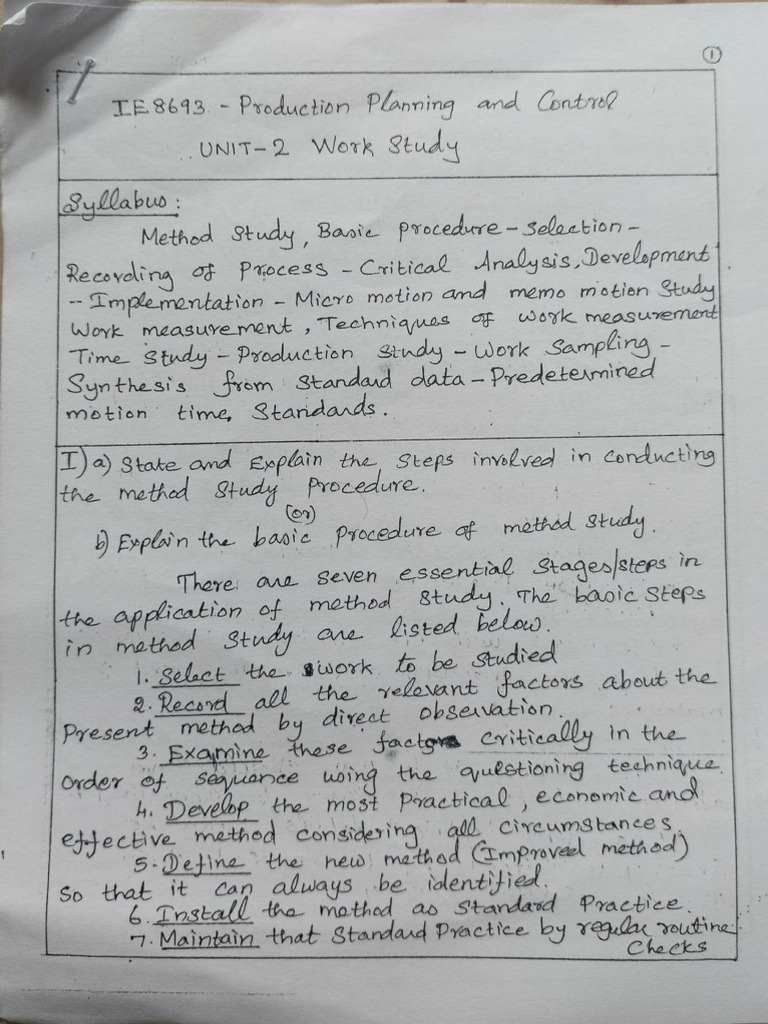 1
IE8693 - Production Planning and Control
UNIT-2 Work Study
Syllabus:
Method Study, Basic procedure - Selection -
Recording of Process - Critical Analysis, Development
-- Implementation - Micro motion and memo motion Study
Work measurement, Techniques of work measurement
Time Study - Production Study - Work Sampling -
Synthesis from Standard data - Predetermined
motion time, Standards.
I) a) State and Explain the Steps involved in conducting
the method Study Procedure.
(or)
b) Explain the basic Procedure of method Study.
There are seven essential Stages/steps in
the application of method Study. The basic Steps
in method Study are listed below.
1. Select the work to be studied
2. Record all the relevant factors about the
Present method by direct observation.
3. Examine these facts critically in the
order of sequence using the questioning technique.
4. Develop the most Practical, economic and
effective method considering all circumstances.
5. Define the new method (Improved method)
So that it can always be identified.
6. Install the method as Standard Practice.
7. Maintain that Standard Practice by regular routine
Checks